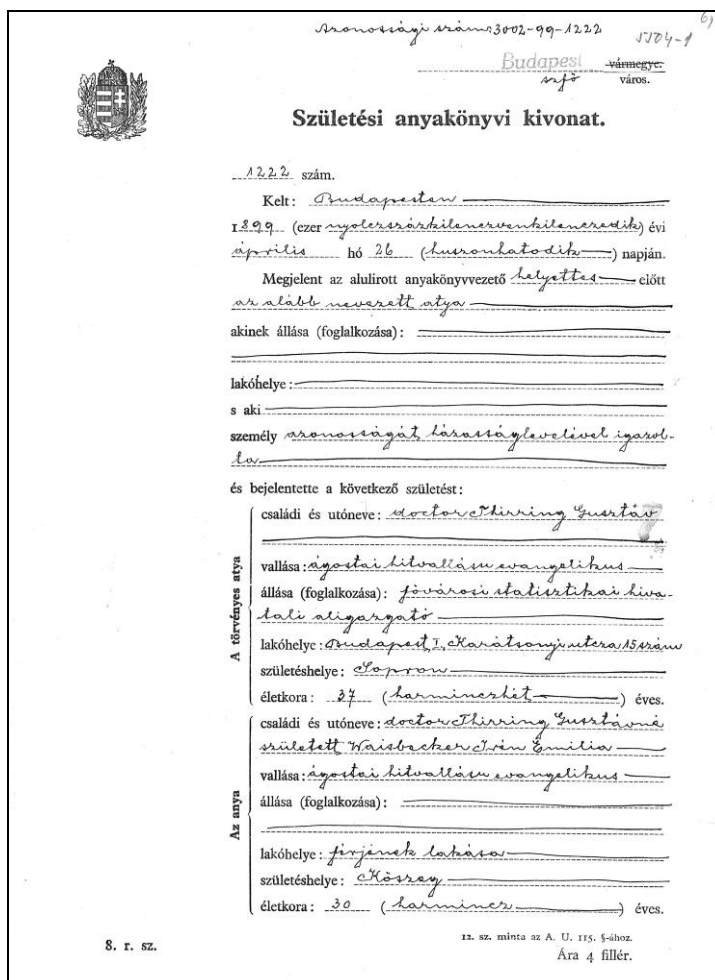 6)
Azonossági szám: 3002-99-1222
5504-1
Budapest vármegye.
szfő város.
Születési anyakönyvi kivonat.
1222 szám.
Kelt: Budapesten
1899 (ezer nyolcszázkilenczvenkilenczedik) évi
április hó 26 (huszonhatodik) napján.
Megjelent az alulirott anyakönyvvezető helyettes előtt
az alább nevezett atya
akinek állása (foglalkozása):
lakóhelye:
s aki
személy azonosságát házasságlevelével igazol-
ta
és bejelentette a következő születést:
A törvényes atya
családi és utóneve: doctor Thirring Gusztáv
vallása: ágostai hitvallásu evangelikus
állása (foglalkozása): fővárosi statisztikai hiva-
tali aligazgató
lakóhelye: Budapest, I, Karátsonyi utcza 15 szám
születéshelye: Sopron
életkora: 37 (harminczhét) éves.
Az anya
családi és utóneve: doctor Thirring Gusztávné
született Waisbecker Irén Emilia
vallása: ágostai hitvallásu evangelikus
állása (foglalkozása):
lakóhelye: férjének lakása
születéshelye: Kőszeg
életkora: 30 (harmincz) éves.
8. r. sz.
12. sz. minta az A. U. 115. §-ához.
Ára 4 fillér.